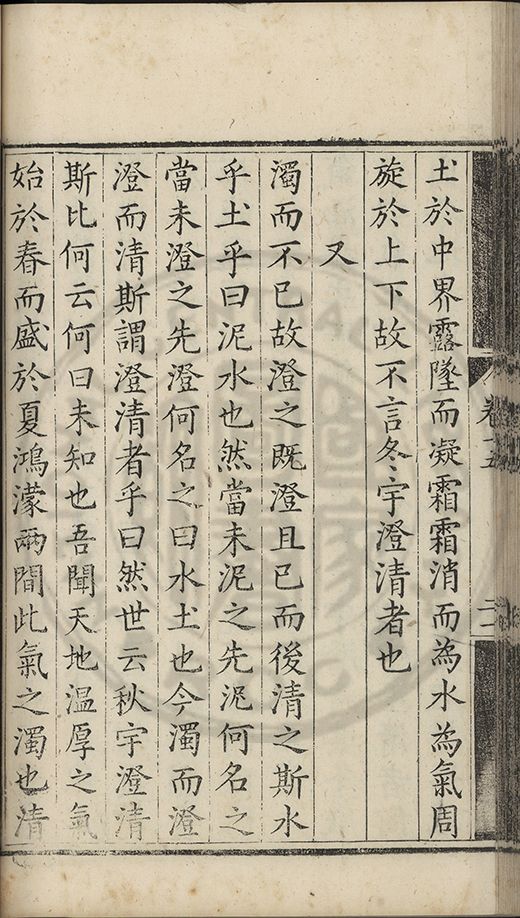 土於中界露墜而凝霜霜消而為水為氣周
旋於上下故不言冬宇澄清者也
又
濁而不已故澄之既澄且已而後清之斯水
乎土乎曰泥水也然當未泥之先泥何名之
當未澄之先澄何名之曰水土也今濁而澄
澄而清斯謂澄清者乎曰然世云秋宇澄清
斯比何云何曰未知也吾聞天地溫厚之氣
始於春而盛於夏鴻濛兩間此氣之濁也清